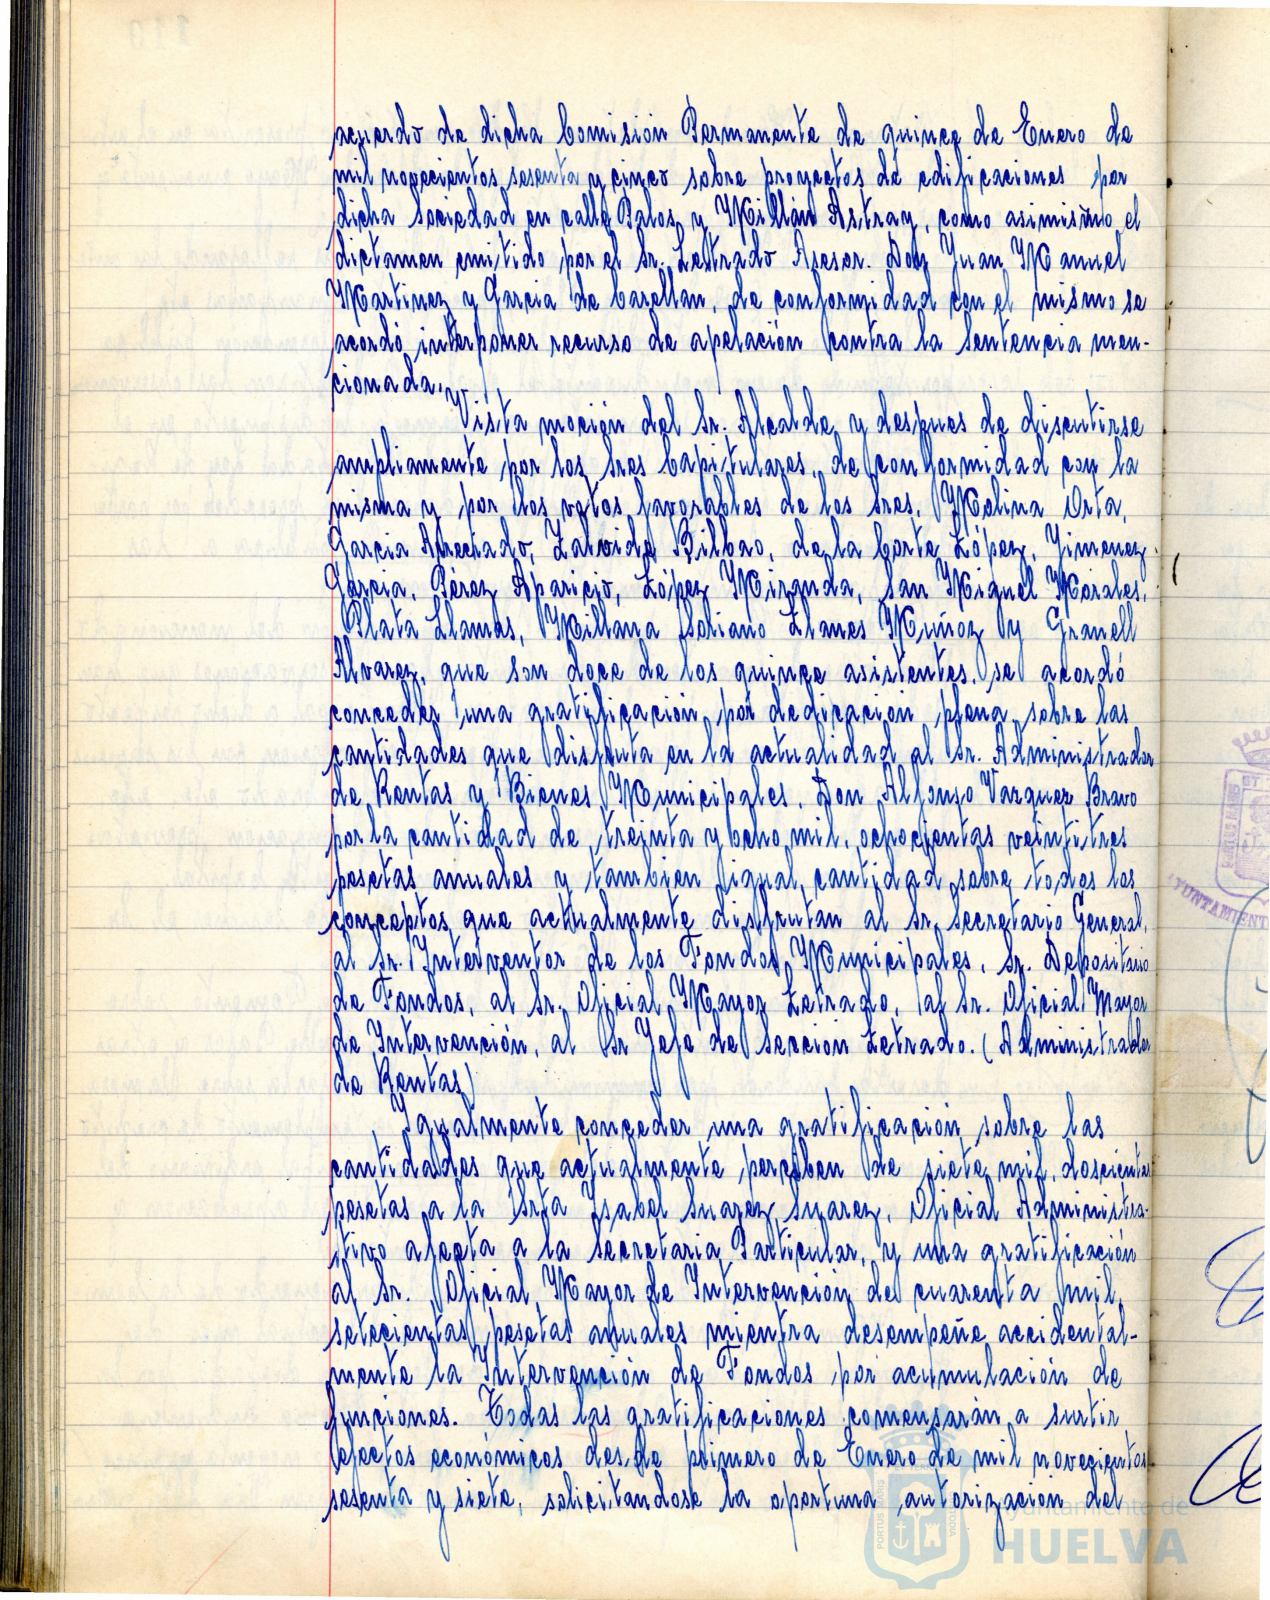 acuerdo de dicha Comisión Permanente de quince de Enero de
mil novecientos sesenta y cinco sobre proyectos de edificaciones por
dicha Sociedad en calle Palos y Millán Astray, como asimismo el
dictamen emitido por el Sr. Letrado Asesor. Don Juan Manuel
Martinez y Garcia de Carellan, de conformidad con el mismo se
acordó interponer recurso de apelación contra la Sentencia men-
cionada.
Vista moción del Sr. Alcalde y despues de discutirse
ampliamente por los Sres Capitulares, de conformidad con la
misma y por los votos favorables de los Sres. Molina Orta,
Garcia Arreciado, Zalvide Bilbao, de la Corte López, Jimenez
Garcia, Pérez Aparicio, López Miranda, San Miguel Morales,
Plata Llamas, Millana Soliano Llanes Muñoz y Granell
Alvarez, que son doce de los quince asistentes, se acordó
conceder una gratificación por dedicación plena sobre las
cantidades que disfruta en la actualidad al Sr. Administrador
de Rentas y Bienes Municipales, Don Alfonso Vazquez Bravo
por la cantidad de treinta y ocho mil, ochocientas veintitres
pesetas anuales y tambien igual cantidad sobre todos los
conceptos que actualmente disfrutan al Sr. Secretario General,
al Sr. Interventor de los Fondos Municipales, Sr. Depositario
de Fondos, al Sr. Oficial Mayor Letrado, al Sr. Oficial Mayor
de Intervención, al Sr Jefe de Sección Letrado. (Administrador
de Rentas)
Igualmente conceder una gratificación sobre las
cantidades que actualmente perciben de siete mil, doscientas
pesetas a la Srta Ysabel Suarez Suarez, Oficial Administra-
tivo afecta a la Secretaria Particular, y una gratificación
al Sr. Oficial Mayor de Intervención de cuarenta mil,
setecientas pesetas anuales mientra desempeñe accidental-
mente la Intervención de Fondos por acumulación de
funciones. Todas las gratificaciones comensarán a surtir
efectos económicos desde primero de Enero de mil novecientos
sesenta y siete, solicitandose la oportuna autorizacion del
Ayuntamiento de
HUELVA